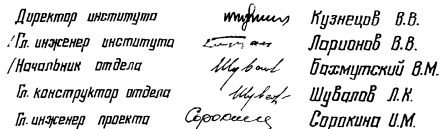 Директор института Кузнецов В.В.
Гл. инженер института Ларионов В.В.
Начальник отдела Шувалов Бахмутский В.М.
Гл. конструктор отдела Шувалов Л.К.
Гл. инженер проекта Сорокина Сорокина И.М.